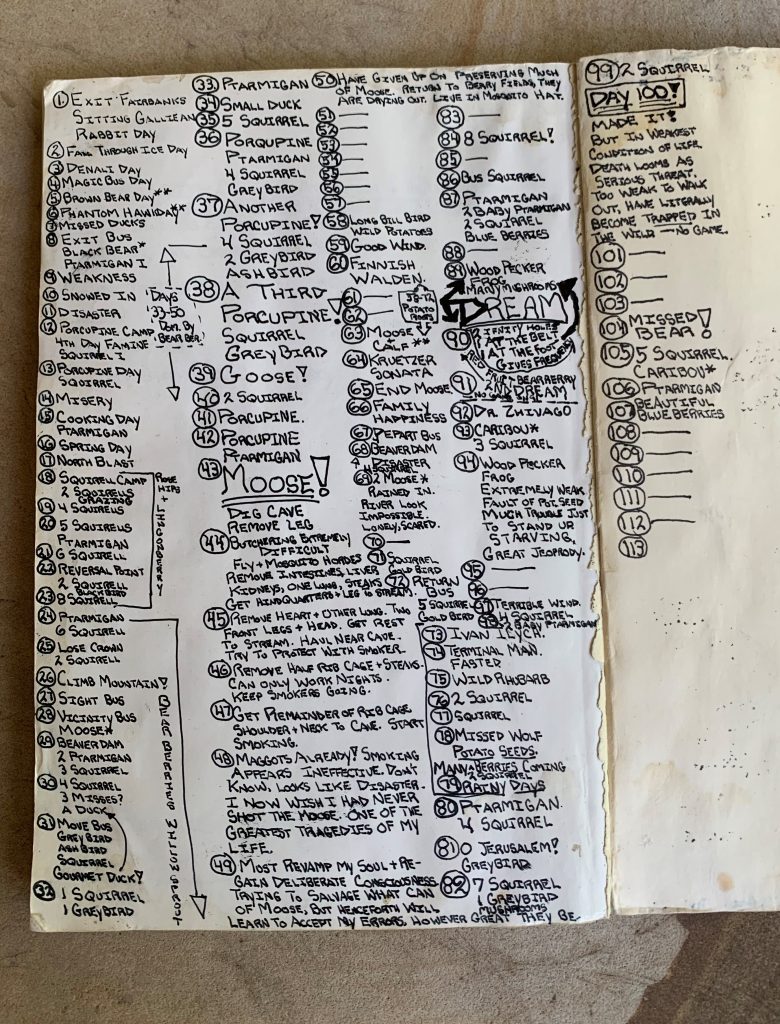 1. EXIT FAIRBANKS
SITTING GALLIEAN
RABBIT DAY
2 FALL THROUGH ICE DAY
3 DENALI DAY
4 MAGIC BUS DAY
5 BROWN BEAR DAY**
6 PHANTOM HAWKDAY**
7 MISSED DUCKS
8 EXIT BUS
BLACK BEAR*
PTARMIGAN 1
9 WEAKNESS
10 SNOWED IN
11 DISASTER
12 PORCUPINE CAMP
4TH DAY FAMINE
SQUIRREL 1
13 PORCUPINE DAY
SQUIRREL
14 MISERY
15 COOKING DAY
PTARMIGAN
16 SPRING DAY
17 NORTH BLAST
18 SQUIRRELL CAMP
2 SQUIRELS
GRAZING
19 4 SQUIRELS
20 5 SQUIRELS
PTARMIGAN
21 6 SQUIRELL
22 REVERSAL POINT
2 SQUIRELL
BLACKBIRD
23 8 SQUIRELL
24 PTARMIGAN
6 SQUIRELL
25 LOSE CROWN
2 SQUIRELL
26 CLIMB MOUNTAIN!
27 SIGHT BUS
28 VICINITY BUS
MOOSE*
29 BEAVERDAM
2 PTARMIGAN
3 SQUIRREL
30 4 SQUIRREL
3 MISSES?
A DUCK
31 MOVE BUS
GREY BIRD
ASH BIRD
SQUIRREL
GOURMET DUCK!
32 1 SQUIRREL
1 GREYBIRD
ROSE HIPS + LINGONBERRY
DAYS
33-50
DOM. BY
BEAR BER.
33 PTARMIGAN
34 SMALL DUCK
35 5 SQUIREL
36 PORQUPINE
PTARMIGAN
4 SQUIREL
GREYBIRD
37 ANOTHER
PORCUPINE!
4 SQUIREL
2 GREYBIRD
ASHBIRD
38 A THIRD
PORCUPINE!
SQUIREL
GREYBIRD
39 GOOSE!
40 2 SQUIREL
41 PORCUPINE.
42 PORCUPINE
PTARMIGAN
43 MOOSE!
DIG CAVE
REMOVE LEG
44 BUTCHERING EXTREMELY
DIFFICULT
FLY + MOSQUITO HORDES
REMOVE INTESTINES, LIVER
KIDNEYS, ONE LUNG, STEAKS
GET HINDQUARTERS + LEG TO STREAM.
45 REMOVE HEART + OTHER LUNG. TWO
FRONT LEGS + HEAD. GET REST
TO STREAM. HAUL NEAR CAVE.
TRY TO PROTECT WITH SMOKER.
46 REMOVE HALF RIB CAGE + STEAKS.
CAN ONLY WORK NIGHTS.
KEEP SMOKERS GOING.
47 GET REMAINDER OF RIB CAGE
SHOULDER + NECK TO CAVE. START
SMOKING.
48 MAGGOTS ALREADY! SMOKING
APPEARS INEFFECTIVE. DON'T
KNOW, LOOKS LIKE DISASTER.
I NOW WISH I HAD NEVER
SHOT THE MOOSE. ONE OF THE
GREATEST TRAGEDIES OF MY
LIFE.
49 MOST REVAMP MY SOUL + RE-
GAIN DELIBERATE CONSCIOUSNESS
TRYING TO SALVAGE WHAT CAN
OF MOOSE, BUT HENCEFORTH WILL
LEARN TO ACCEPT MY ERRORS, HOWEVER GREAT THEY BE
50 HAVE GIVEN UP ON PRESERVING MUCH
OF MOOSE. RETURN TO BERRY FIELDS, THEY
ARE DRYING OUT. LIVE IN MOSQUITO HAT.
51
52
53
54
55
56
57
58 LONG BILL BIRD
WILD POTATOES
59 GOOD WIND.
60 FINNISH
WALDEN.
61
62
POTATO
ROOTS
63 MOOSE
CALF**
64 KRUETZER
SONATA
65 END MOOSE
66 FAMILY
HAPPINESS
67 DEPART BUS
68 BEAVERDAM
69 DISASTER
2 MOOSE*
RAINED IN.
RIVER LOOK
IMPOSSIBLE.
LONELY, SCARED.
70
71 SQUIRREL
GOLD BIRD
72 RETURN
BUS
5 SQUIRREL
GOLD BIRD
73 IVAN ILYCH.
74 TERMINAL MAN.
FASTED
75 WILD RHUBARB
76 2 SQUIRREL
77 SQUIRREL
78 MISSED WOLF
POTATO SEEDS.
MANY BERRIES COMING
2 SQUIRREL
79 RAINY DAYS
80 PTARMIGAN.
4 SQUIRREL
81 O JERUSALEM!
GREYBIRD
82 7 SQUIRREL
1 GREYBIRD
MUSHROOMS
83
84 8 SQUIRREL!
85
86 BUS SQUIRREL
87 PTARMIGAN
2 BABY PTARMIGAN
2 SQUIRREL
BLUE BERRIES
88
89 WOOD PECKER
FROG
MANY MUSHROOMS
DREAM
90
AT THE BELT
AT THE FOOT
GIVES
91 BEARBERRY
DREAM
92 DR. ZHIVAGO
93 CARIBOU*
3 SQUIRREL
94 WOOD PECKER
FROG
EXTREMELY WEAK
FAULT OF POT. SEED
MUCH TROUBLE JUST
TO STAND UP
STARVING,
GREAT JEOPRODY.
95
97 TERRIBLE WIND.
4 SQUIRREL
2 BABY PTARMIGAN
99 2 SQUIRREL
DAY 100!
MADE IT!
BUT IN WEAKEST
CONDITION OF LIFE
DEATH LOOMS AS
SERIOUS THREAT.
TOO WEAK TO WALK
OUT, HAVE LITERALLY
BECOME TRAPPED IN
THE WILD—NO GAME.
101
102
103
104 MISSED
BEAR!
105 5 SQUIREL
CARIBOU*
106 PTARMIGAN
107 BEAUTIFUL
BLUE BERRIES
108
109
110
111
112
113